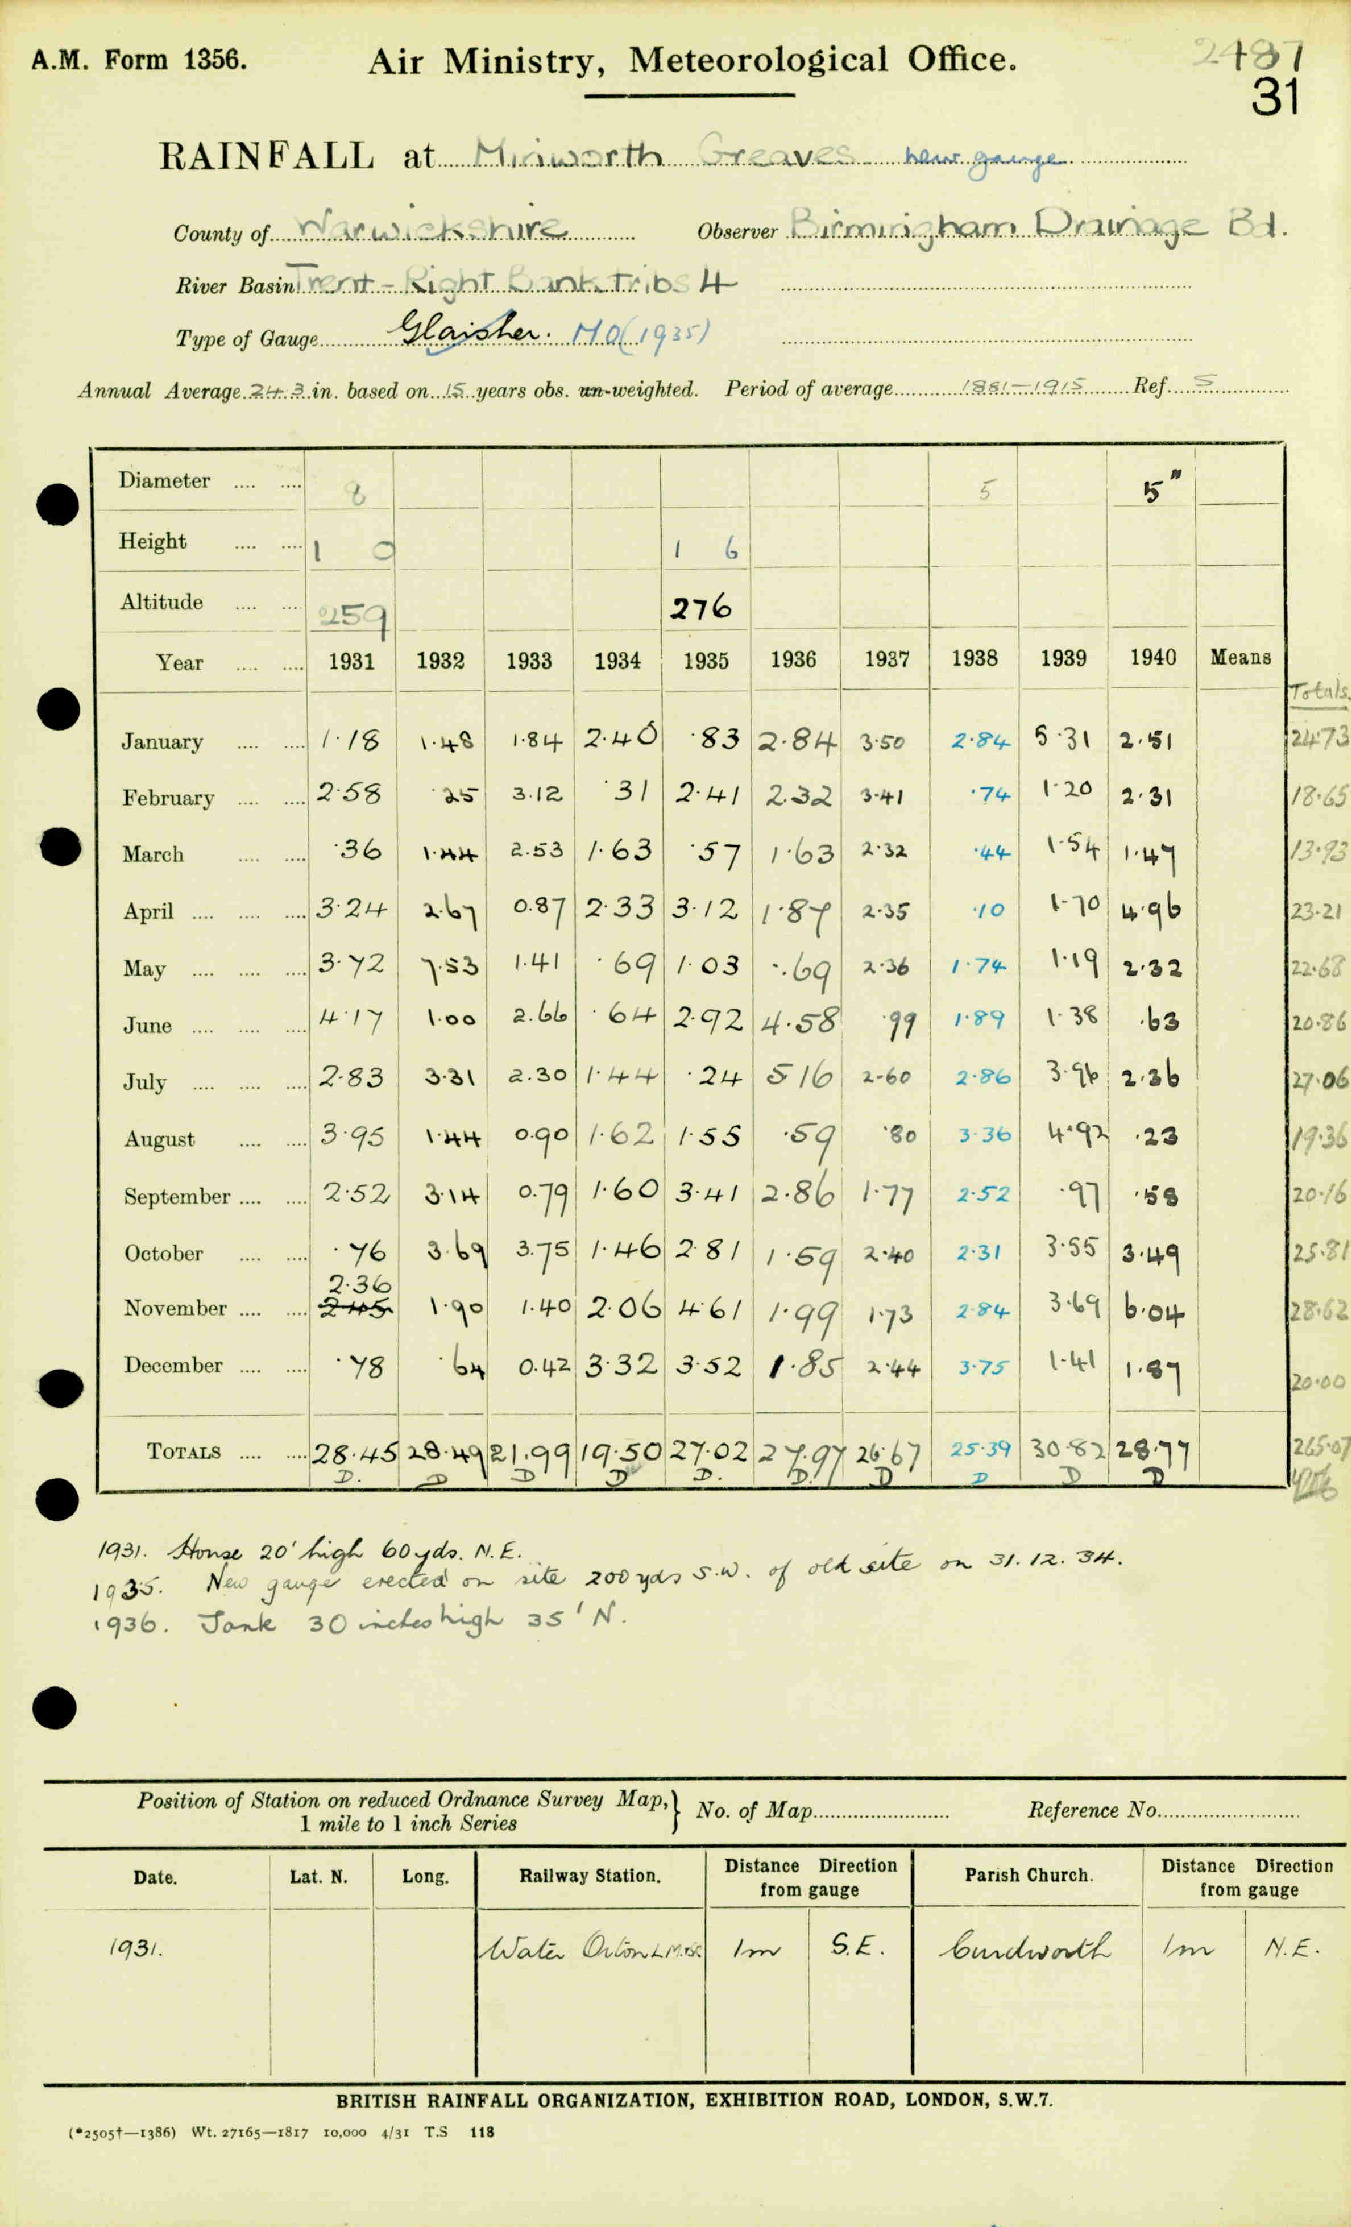 A.M. Form 1356. Air Ministry, Meteorological Office. 2487
31
RAINFALL at Minworth Greaves new gauge
County of Warwickshire Observer Birmingham Drainage Bd.
River Basin Trent - Right Bank Tribs 4
Type of Gauge Glaisher. MO (1935)
Annual Average 24.3 in. based on 15 years obs. un-weighted. Period of average 1881-1915 Ref. S
Diameter 8 5 5"
Height 1 0 1 6
Altitude 259 276
Year 1931 1932 1933 1934 1935 1936 1937 1938 1939 1940 Means
Totals
January 1.18 1.48 1.84 2.40 .83 2.84 3.50 2.84 5.31 2.51 24.73
February 2.58 .25 3.12 .31 2.41 2.32 3.41 .74 1.20 2.31 18.65
March .36 1.44 2.53 1.63 .57 1.63 2.32 .44 1.54 1.47 13.93
April 3.24 2.67 0.87 2.33 3.12 1.87 2.35 .10 1.70 4.96 23.21
May 3.72 7.53 1.41 .69 1.03 .69 2.36 1.74 1.19 2.32 22.68
June 4.17 1.00 2.66 .64 2.92 4.58 .99 1.89 1.38 .63 20.86
July 2.83 3.31 2.30 1.44 .24 5 16 2.60 2.86 3.96 2.36 27.06
August 3.95 1.44 0.90 1.62 1.55 .59 .80 3.36 4.92 .23 19.36
September 2.52 3.14 0.79 1.60 3.41 2.86 1.77 2.52 .97 .58 20.16
October .76 3.69 3.75 1.46 2.81 1.59 2.40 2.31 3.55 3.49 25.81
2.36
November 2.45 1.90 1.40 2.06 4.61 1.99 1.73 2.84 3.69 6.04 28.62
December .78 .64 0.42 3.32 3.52 1.85 2.44 3.75 1.41 1.87 20.00
TOTALS 28.45 28.49 21.99 19.50 27.02 27.97 26.67 25.39 30.82 28.77 265.07
D. D D D D. D. D D D D
1931. House 20' high 60 yds. N.E.
1935. New gauge erected on site 200 yds S.W. of old site on 31.12.34.
1936. Tank 30 inches high 35' N.
Position of Station on reduced Ordnance Survey Map,
1 mile to 1 inch Series } No. of Map Reference No.
Date. Lat. N. Long. Railway Station. Distance Direction from gauge Parish Church. Distance Direction from gauge
1931. Water Orton L.M.&S.R 1m S.E. Curdworth 1m N.E.
BRITISH RAINFALL ORGANIZATION, EXHIBITION ROAD, LONDON, S.W.7.
(*2505†—1386) Wt. 27165—1817 10,000 4/31 T.S 118